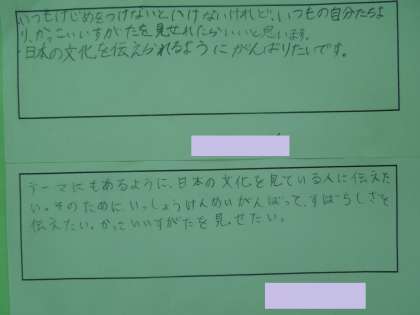 いつもけじめをつけないといけないけれど、いつもの自分たちよ
り、かっこいいすがたを見せれたらいいと思います。
日本の文化を伝えられるようにがんばりたいです。
テーマにもあるように、日本の文化を見ている人に伝えた
い。そのために、いっしょうけんめいがんばって、すばらしさを
伝えたい。かっこいいすがたを見せたい。